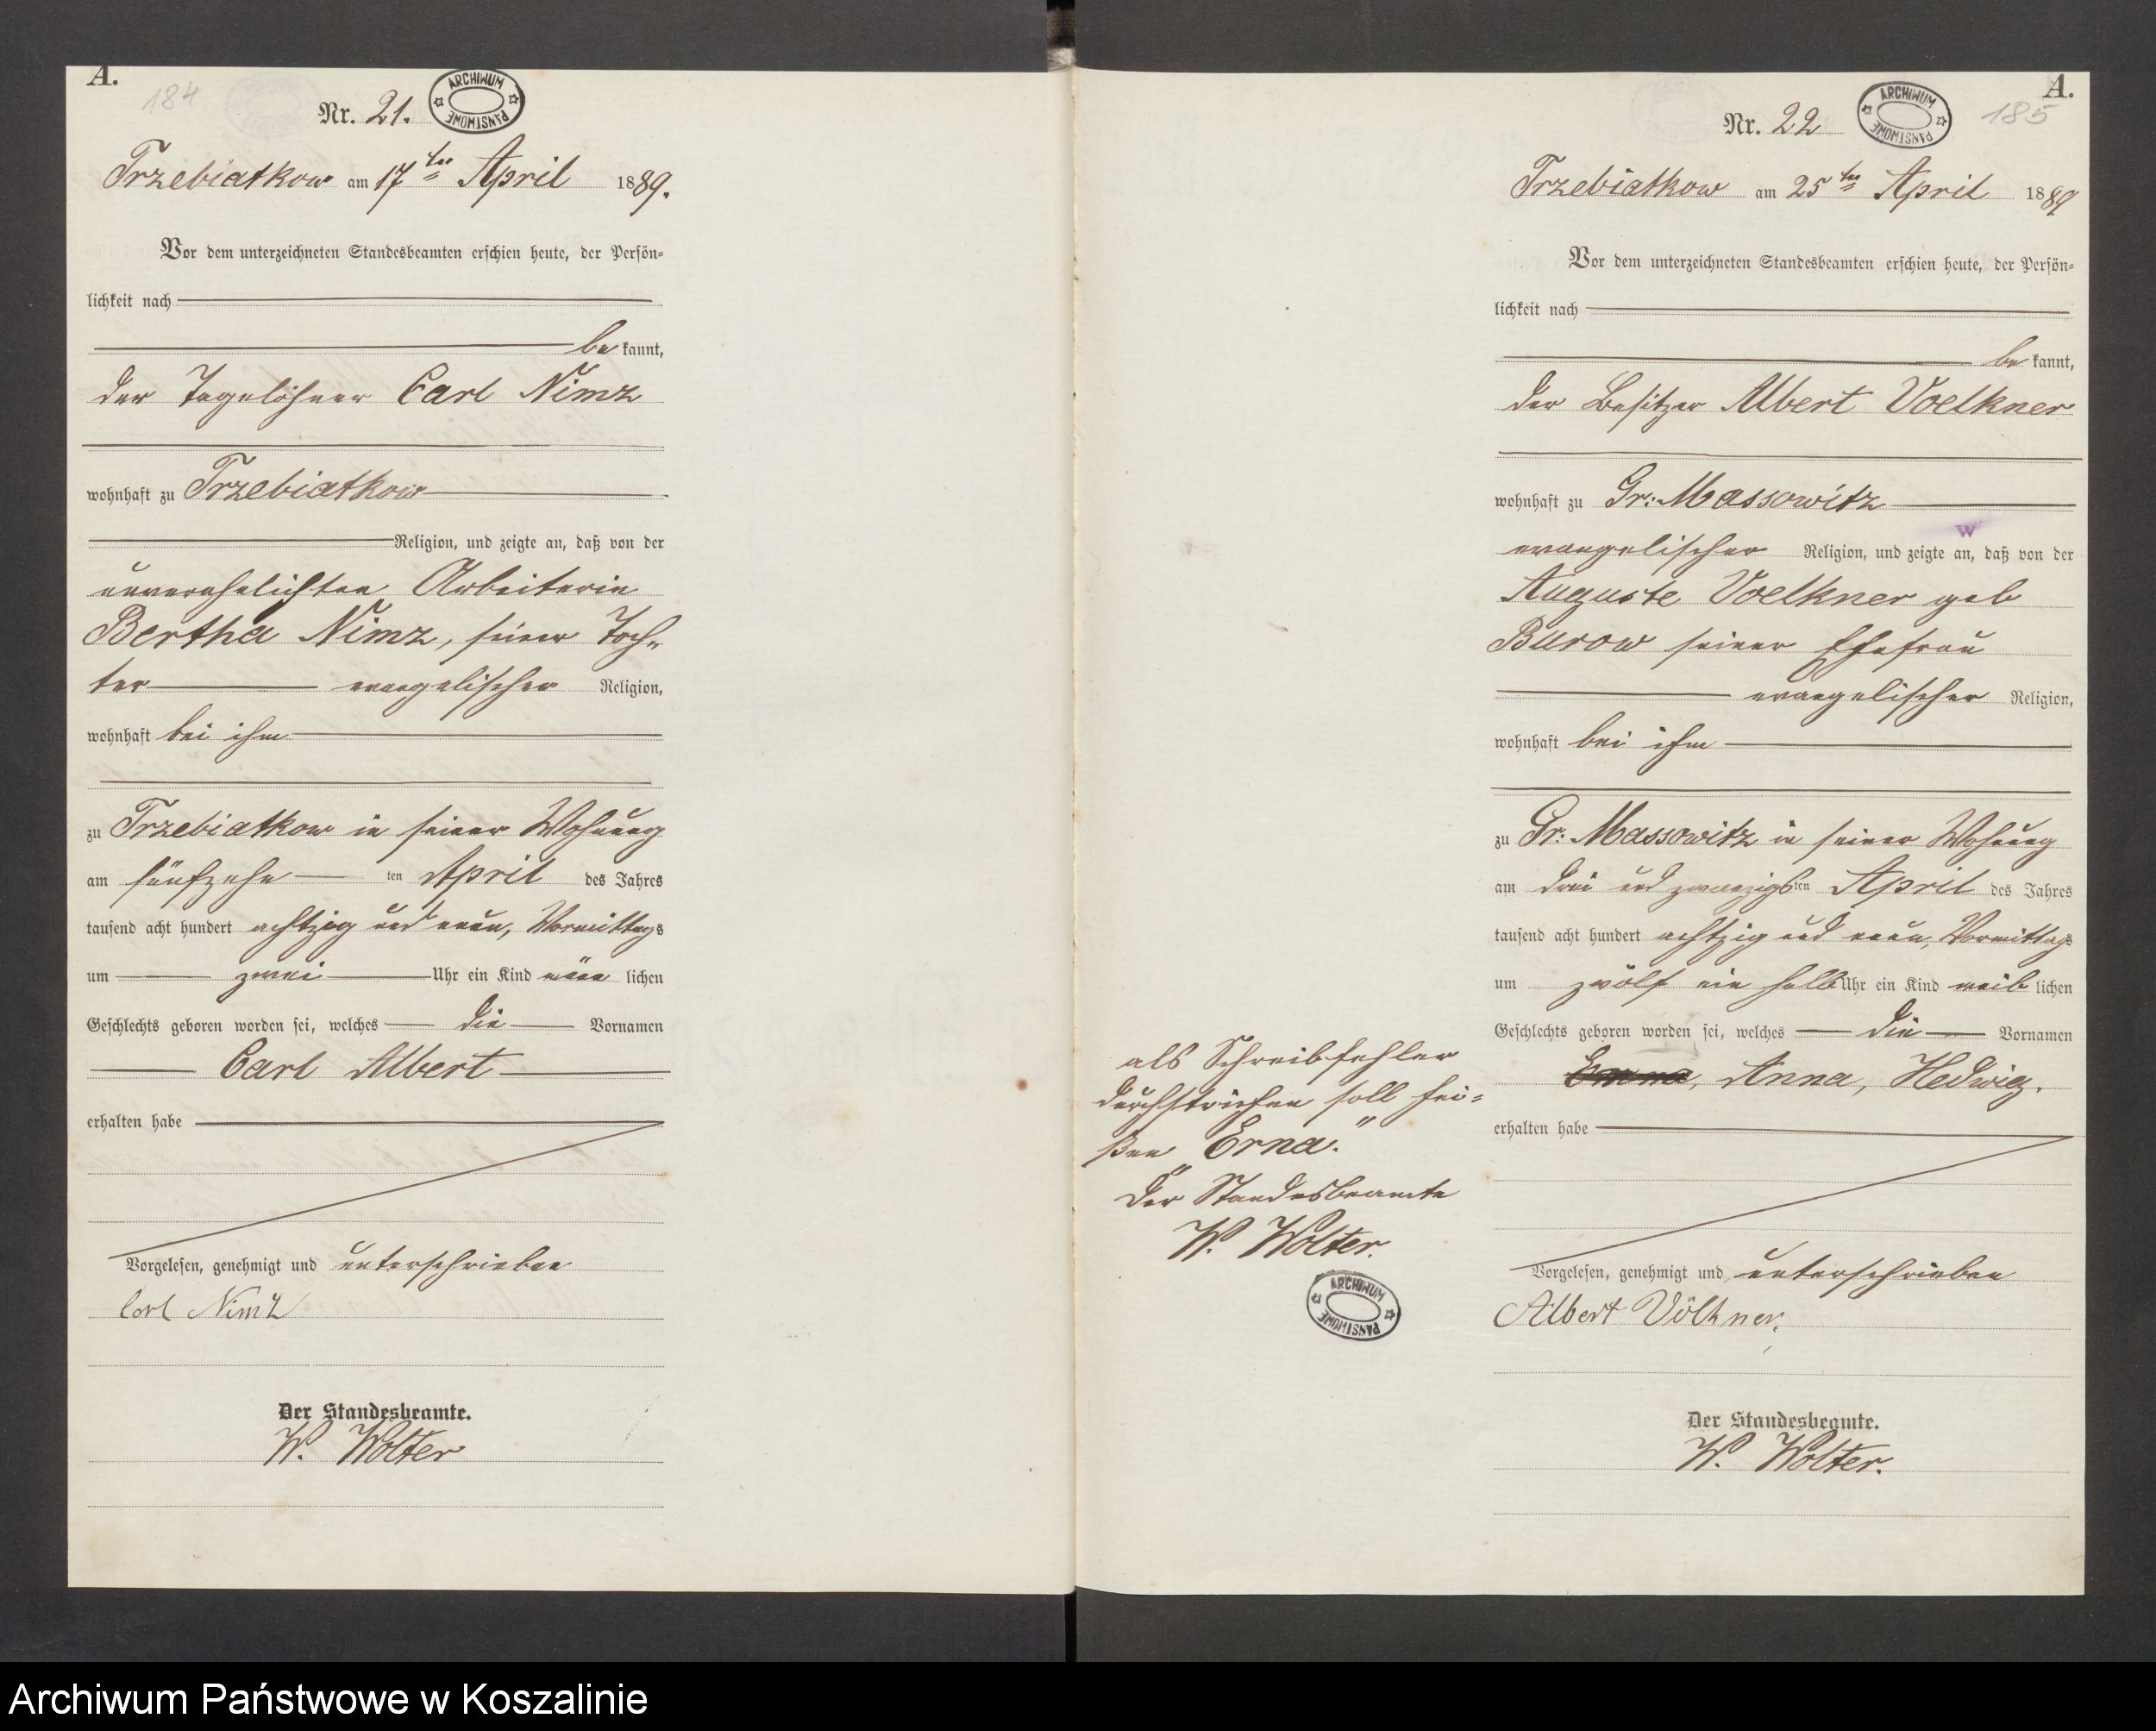 A.
184
Nr. 21.
ARCHIWUM PAŃSTWOWE
Trzebiatkow am 17ten April 1889.
Vor dem unterzeichneten Standesbeamten erschien heute, der Persön-
lichkeit nach
be kannt,
der Tagelöhner Carl Nimz
wohnhaft zu Trzebiatkow
Religion, und zeigte an, daß von der
unverehelichten Arbeiterin
Bertha Nimz, seiner Toch-
ter evangelischer Religion,
wohnhaft bei ihm
zu Trzebiatkow in seiner Wohnung
am fünfzehn ten April des Jahres
tausend acht hundert achtzig und neun, Vormittags
um zwei Uhr ein Kind männ lichen
Geschlechts geboren worden sei, welches die Vornamen
Carl Albert
erhalten habe
Vorgelesen, genehmigt und unterschrieben
Carl Nimz
Der Standesbeamte.
W. Wolter
A.
185
Nr. 22
ARCHIWUM PAŃSTWOWE
Trzebiatkow am 25ten April 1889
Vor dem unterzeichneten Standesbeamten erschien heute, der Persön-
lichkeit nach
be kannt,
der Besitzer Albert Voelkner
wohnhaft zu Gr: Massowitz
w
evangelischer Religion, und zeigte an, daß von der
Auguste Voelkner geb
Burow seiner Ehefrau
evangelischer Religion,
wohnhaft bei ihm
zu Gr: Massowitz in seiner Wohnung
am drei und zwanzigsten April des Jahres
tausend acht hundert achtzig und neun, Vormittags
um zwölf ein halb Uhr ein Kind weib lichen
Geschlechts geboren worden sei, welches die Vornamen
Emma, Anna, Hedwig.
erhalten habe
als Schreibfehler
durchstrichen soll hei-
ßen "Erna."
Der Standesbeamte
W. Wolter.
ARCHIWUM PAŃSTWOWE
Vorgelesen, genehmigt und unterschrieben
Albert Völkner,
Der Standesbeamte.
W. Wolter.
Archiwum Państwowe w Koszalinie